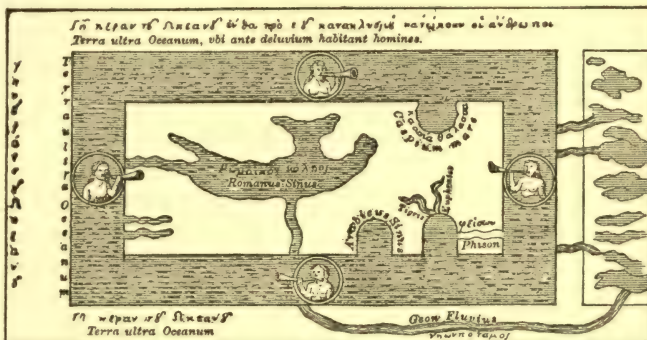 Γῆ πέραν τȣ͂ Ὠκεανȣ͂ ἔνθα πρὸ τȣ͂ κατακλυσμȣ͂ κατῴκουν οἱ ἄνθρωποι
Terra ultra Oceanum, vbi ante deluvium habitant homines.
Terra ultra Oceanum
Κασπία θάλασσα
Caspium mare
Ῥωμαικὸς κόλπος
Romanus Sinus
Arabicus Sinus
Tigris
Euphrates
φείσων
Phison
Γῆ πέραν τȣ͂ Ὠκεανȣ͂
Terra ultra Oceanum
Geow Fluvius
γηων ποταμος